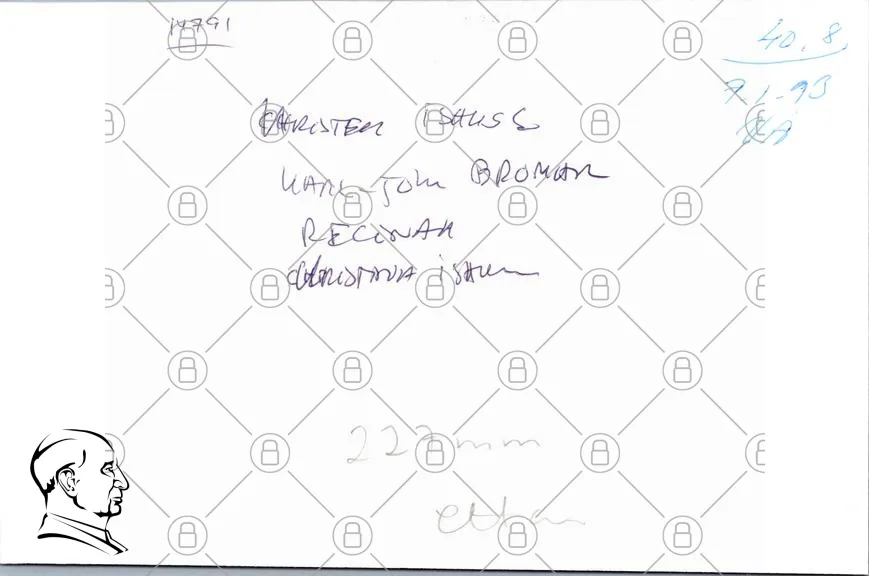 14791
40.8
7.1.93
CHRISTER ISAKSS
KARL-JOHN BROMAN
REGINAH
CHRISTINA ISAK
227 mm